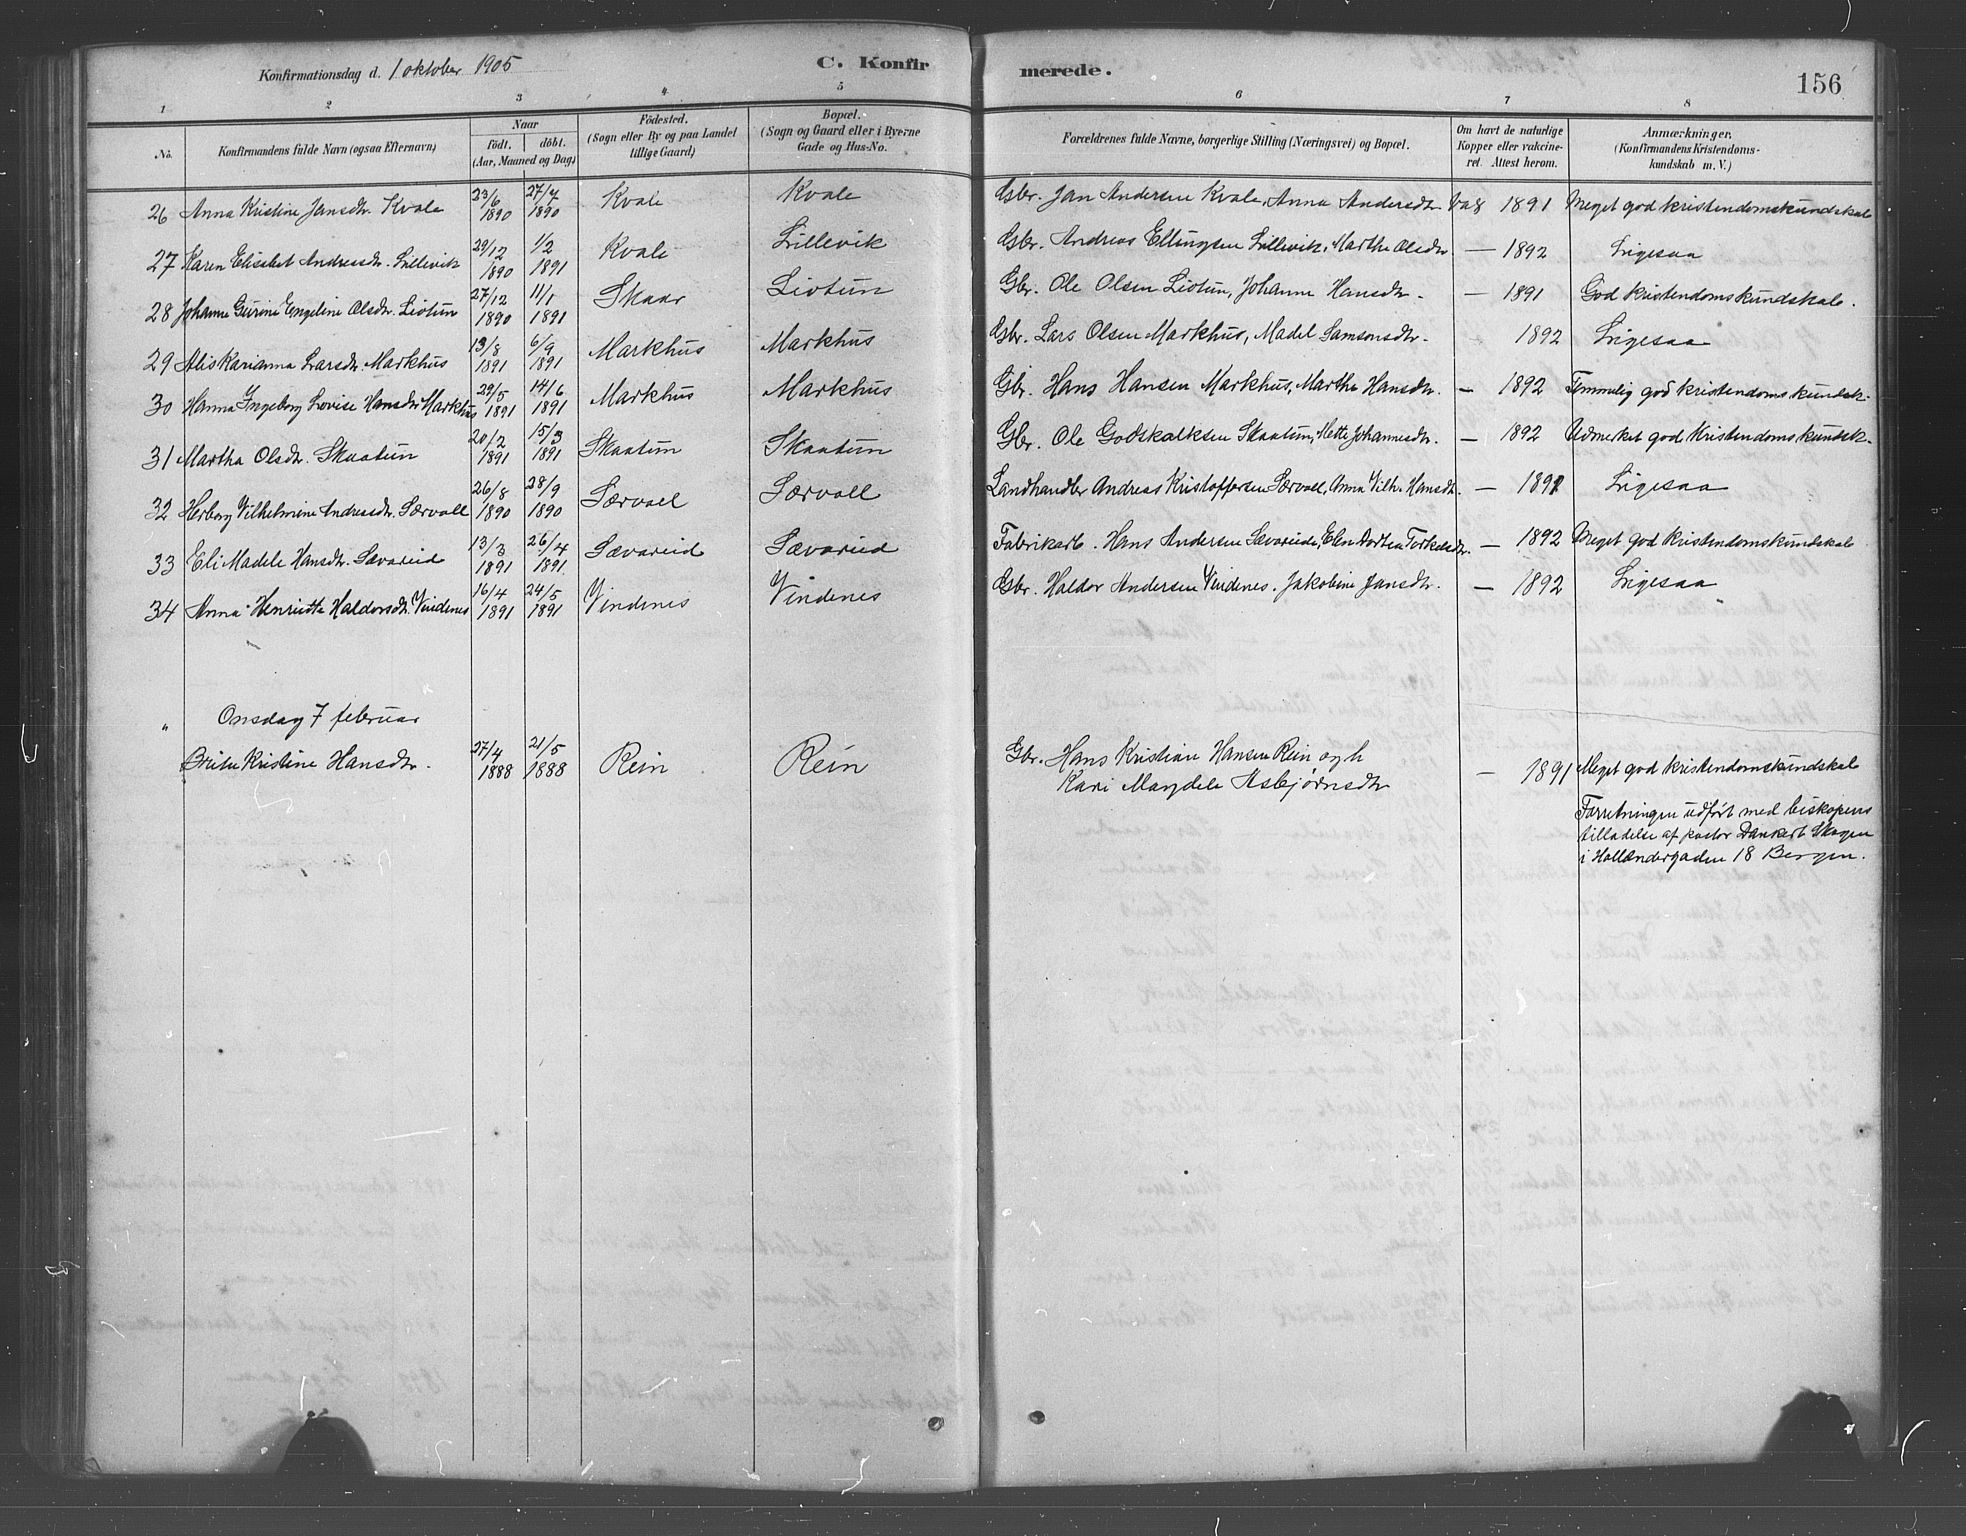 Konfirmationsdag d. 1 oktober 1905 C. Konfirmerede. 156
1 2 3 4 5 6 7 8
No. Konfirmandens fulde Navn (ogsaa Efternavn) Naar födt. döbt. (Aar, Maaned og Dag) Födested. (Sogn eller By og paa Landet tillige Gaard) Bopæl. (Sogn og Gaard eller i Byerne Gade og Hus-No. Forældrenes fulde Navne, borgerlige Stilling (Næringsvei) og Bopæl. Om havt de naturlige Kopper eller vakcineret. Attest herom. Anmærkninger. (Konfirmandens Kristendomskundskab m. V.)
26 Anna Kristine Jansdtr. Kvale 23/6 1890 27/7 1890 Kvale Kvale Gbr. Jan Andersen Kvale, Anna Andersdtr Vag 1891 Meget god kristendomskundskab
27 Karen Elisabet Andreasdtr. Lillevik 29/12 1890 1/2 1891 Kvale Lillevik Gbr. Andreas Ellingsen Lillevik, Martha Olsdtr — 1892 Ligesaa
28 Johanne Gurine Engeline Olsdtr. Liotun 27/12 1890 11/1 1891 Skaar Liotun Gbr. Ole Olsen Liotun, Johanne Hansdtr. — 1891 God kristendomskundskab.
29 Alis Karianna Larsdtr. Markhus 13/8 1891 6/9 1891 Markhus Markhus Gbr. Lars Olsen Markhus, Madel Samsonsdtr. 1892 Ligesaa
30 Hanna Ingeborg Lovise Hansdtr Markhus 29/5 1891 14/6 1891 Markhus Markhus Gbr. Hans Hansen Markhus, Martha Hansdtr. — 1892 Temmelig god kristendomskundsk.
31 Martha Olsdtr. Skaatun 20/2 1891 15/3 1891 Skaatun Skaatun Gbr. Ole Godskalksen Skaatun, Mette Johannesdtr. — 1892 Udmerket god kristendomskundsk.
32 Herborg Vilhelmine Andreasdtr. Særvoll 26/8 1890 28/9 1890 Særvoll Særvoll Landhandler Andreas Kristoffersen Særvoll, Anna Vilh. Hansdtr. — 1891 Ligesaa
33 Eli Madele Hansdtr. Sævareid 13/3 1891 26/4 1891. Sævareid Sævareid Fabrikarb. Hans Andersen Sævareide, Elen Dortea Torkelsdtr. — 1892 Meget god kristendomskundskab
34 Anna Henriette Haldorsdtr. Vindenes 16/4 1891 24/5 1891 Vindenes Vindenes Gbr. Haldor Andersen Vindenes. Jakobine Jansdtr. — 1892 Ligesaa
„ Onsdag 7 februar
Brita Kristine Hansdtr. 27/4 1888 21/5 1888 Rein Rein Gbr. Hans Kristian Hansen Rein og h — 1891 Meget god kristendomskundskab
Kari Magdele Asbjørnsdtr
Forretningen udført med biskopens
tilladelse af pastor Dankert Skagen
i Hollændergaden 18 Bergen.